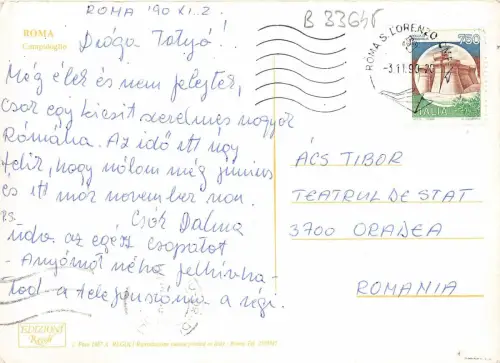 ROMA '90 XI. 2.
B 33645
ROMA
Campidoglio
Drága Totyó!
Még él er és nem felejter,
csor egy kicsit szerelmes vagyor
Rómába. Az idő itt úgy
telir, hogy nálom még június
és itt már november van.
Csók Dalma
üdv. az egész csapatot
- Anyámat néha felhívha-
tod a telefonszáma a régi.
ROMA S. LORENZO
-3.11.90-20
750
ITALIA
ÁCS TIBOR
TEATRUL DE STAT
3700 ORADEA
ROMANIA